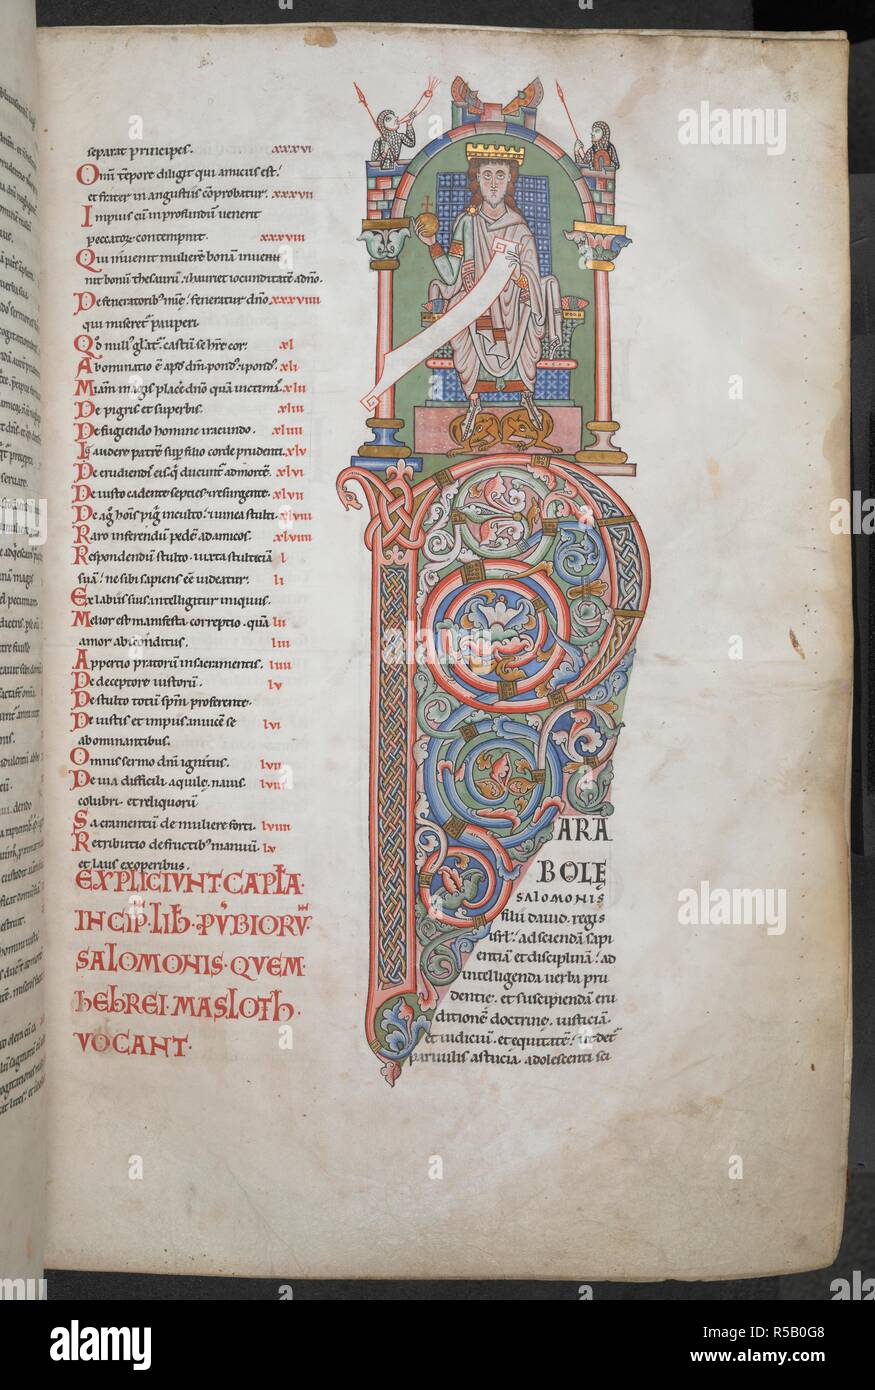 separat principes. xxxvi
Om̄ t̄pore diligit qui amicus est.
et frater in angustiis cōprobatur. xxxvii
Impius cū in profundum uenerit
peccatoꝝ contempnit. xxxviii
Qui inuenit mulierē bonam inueni
nit bonū thesaurū. ⁊ hauriet iocunditatē a dn̄o.
De feneratorib; feneratur dn̄o xxxviiii
qui miseret᷑ pauperi
Qđ null' castū se hr̄e cor. xl
Abominatio ē apđ dm̄. pond' ⁊ pond'. xli
Mīam magis placē dn̄o quā uictimā. xlii
De pigris et superbis. xliii
De fugiendo homine iracundo. xliiii
gaudere patrē suꝑ filio corde prudenti. xlv
De erudiend' eis q̄ ducunt᷑ ad mortē. xlvi
De iusto cadente septies ⁊ resurgente. xlvii
De agro hoīs pigri inculto. ⁊ uinea stulti. xlviii
Raro inferendū pedē ad amicos. xlviiii
Respondendū stulto iuxta stulticiā l
suā. ne sibi sapiens eē uideatur. li
Ex labiis suis intelligitur iniquus.
Melior est manifesta correptio. quā lii
amor absconditus. liii
Appertio pratorū in sacramentis. liiii
De deceptore iustorū. lv
De stulto totū spm̄ proferente.
De iustis et impiis inuicē se lvi
abominantibus.
Omnis sermo dm̄ ignitus. lvii
De uia difficili aquile, nauis. lviii
colubri. et reliquorū
Sacramentū de muliere forti. lviiii
Retributio de fructib; manuū. lx
et laus ex operibus.
EXPLICIVNT·CAPL̄A·
INCIP̄·LIƀ·PV̄BIORVM
SALOMONIS·QVEM·
HEBREI·MASLOTH·
VOCANT·
38
P
ARA
BOLĘ
SALOMONIS
filii dauid. regis
isrl̄. ad sciendā sapi
entiā et disciplinā. ad
intelligenda uerba pru
dentię. et suscipiendā eru
ditionē doctrinę. iusticiā.
et iudiciū. et equitatē. ut det᷑
paruulis astucia. adolescenti sci
alamy
alamy
Image ID: R5B0G8
www.alamy.com